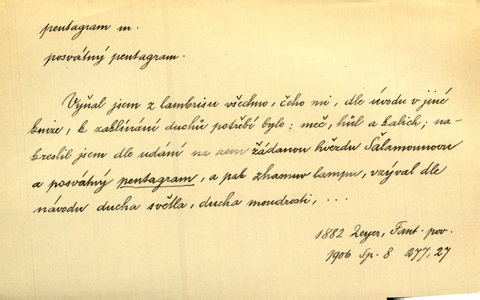 pentagram m.
posvátný pentagram.
Vyňal jsem z lambrisu všechno, čeho mi, dle úvodu v jiné
knize, k zaklínání duchů potřebí bylo: meč, hůl a kalich; na-
kreslil jsem dle udání na zem žádanou hvězdu Šalamounovu
a posvátný pentagram, a pak zhasnuv lampu, vzýval dle
návodu ducha světla, ducha moudrosti, ...
1882 Zeyer, Fant. pov.
1906 Sp. 8 277, 27